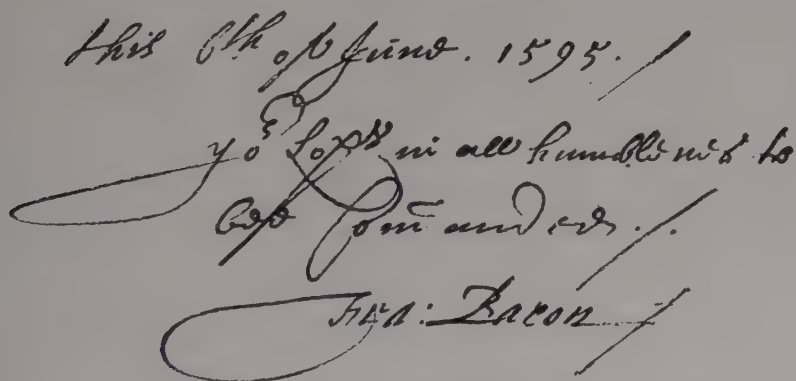 this 6th of June. 1595. /
yor Lops in all humblenes to
be Com̃anded. /.
Fra: Bacon /